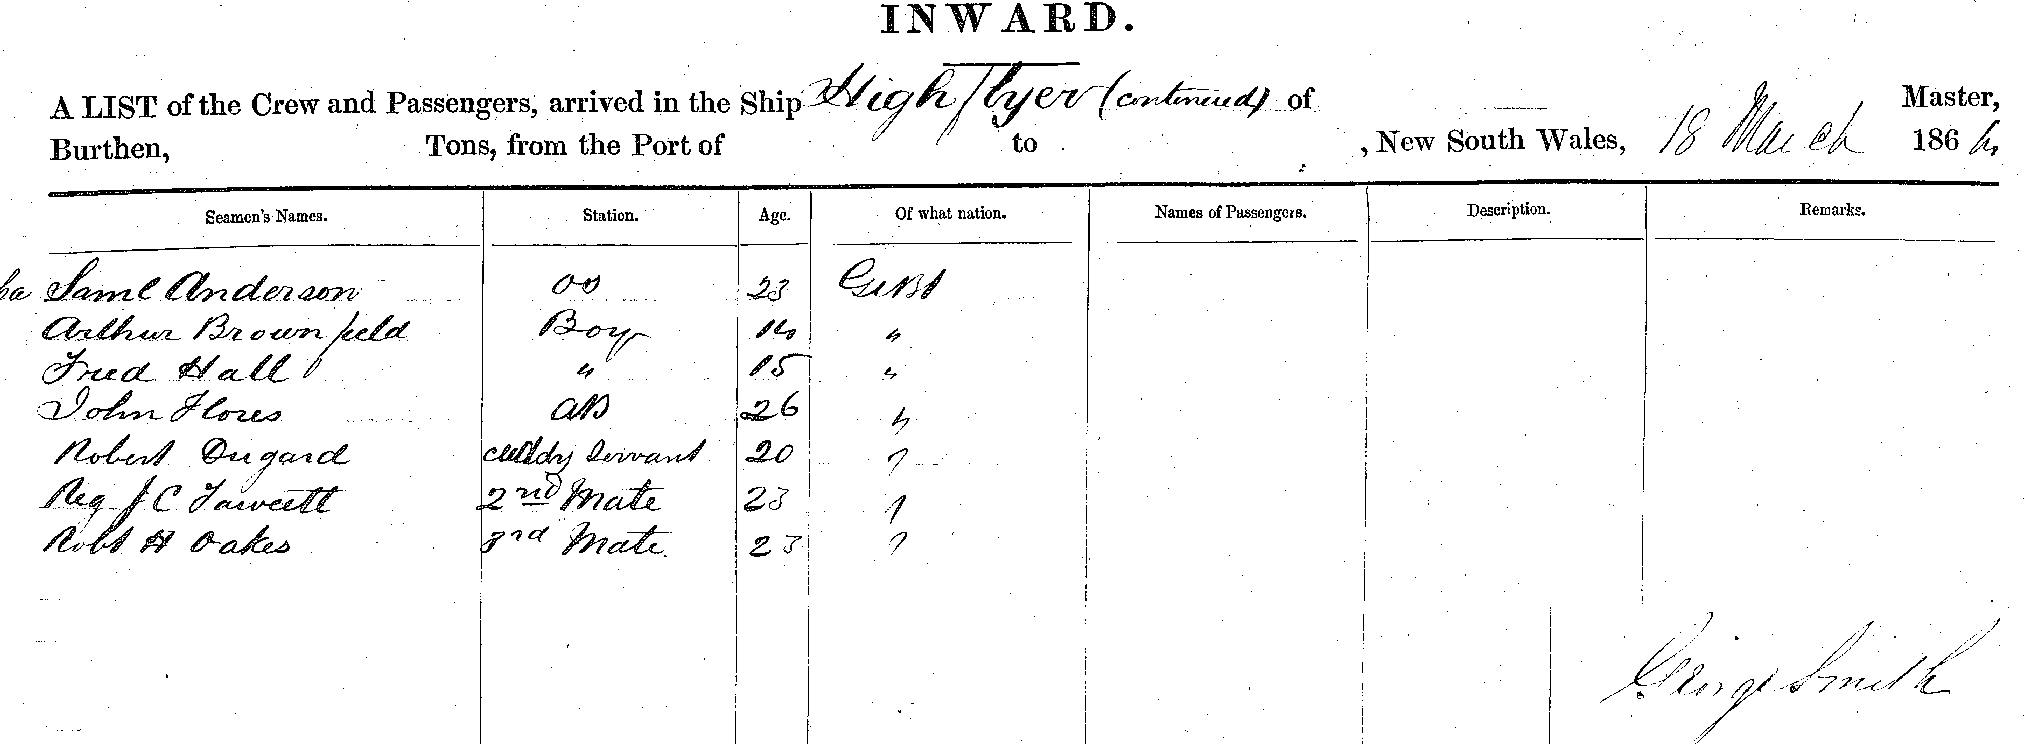 INWARD.
A LIST of the Crew and Passengers, arrived in the Ship High flyer (continued) of Master,
Burthen, Tons, from the Port of to , New South Wales, 18 March 1864
Seamen's Names. Station. Age. Of what nation. Names of Passengers. Description. Remarks.
Saml Anderson OS 23 Gt Bt
Arthur Brownfield Boy 14 "
Fred Hall " 15 "
John Flores AB 26 "
Robert Dugard cuddy Servant 20 "
Reg J C Fawcett 2nd Mate 23 "
Robt H Oakes 3rd Mate. 23 "
George Smith